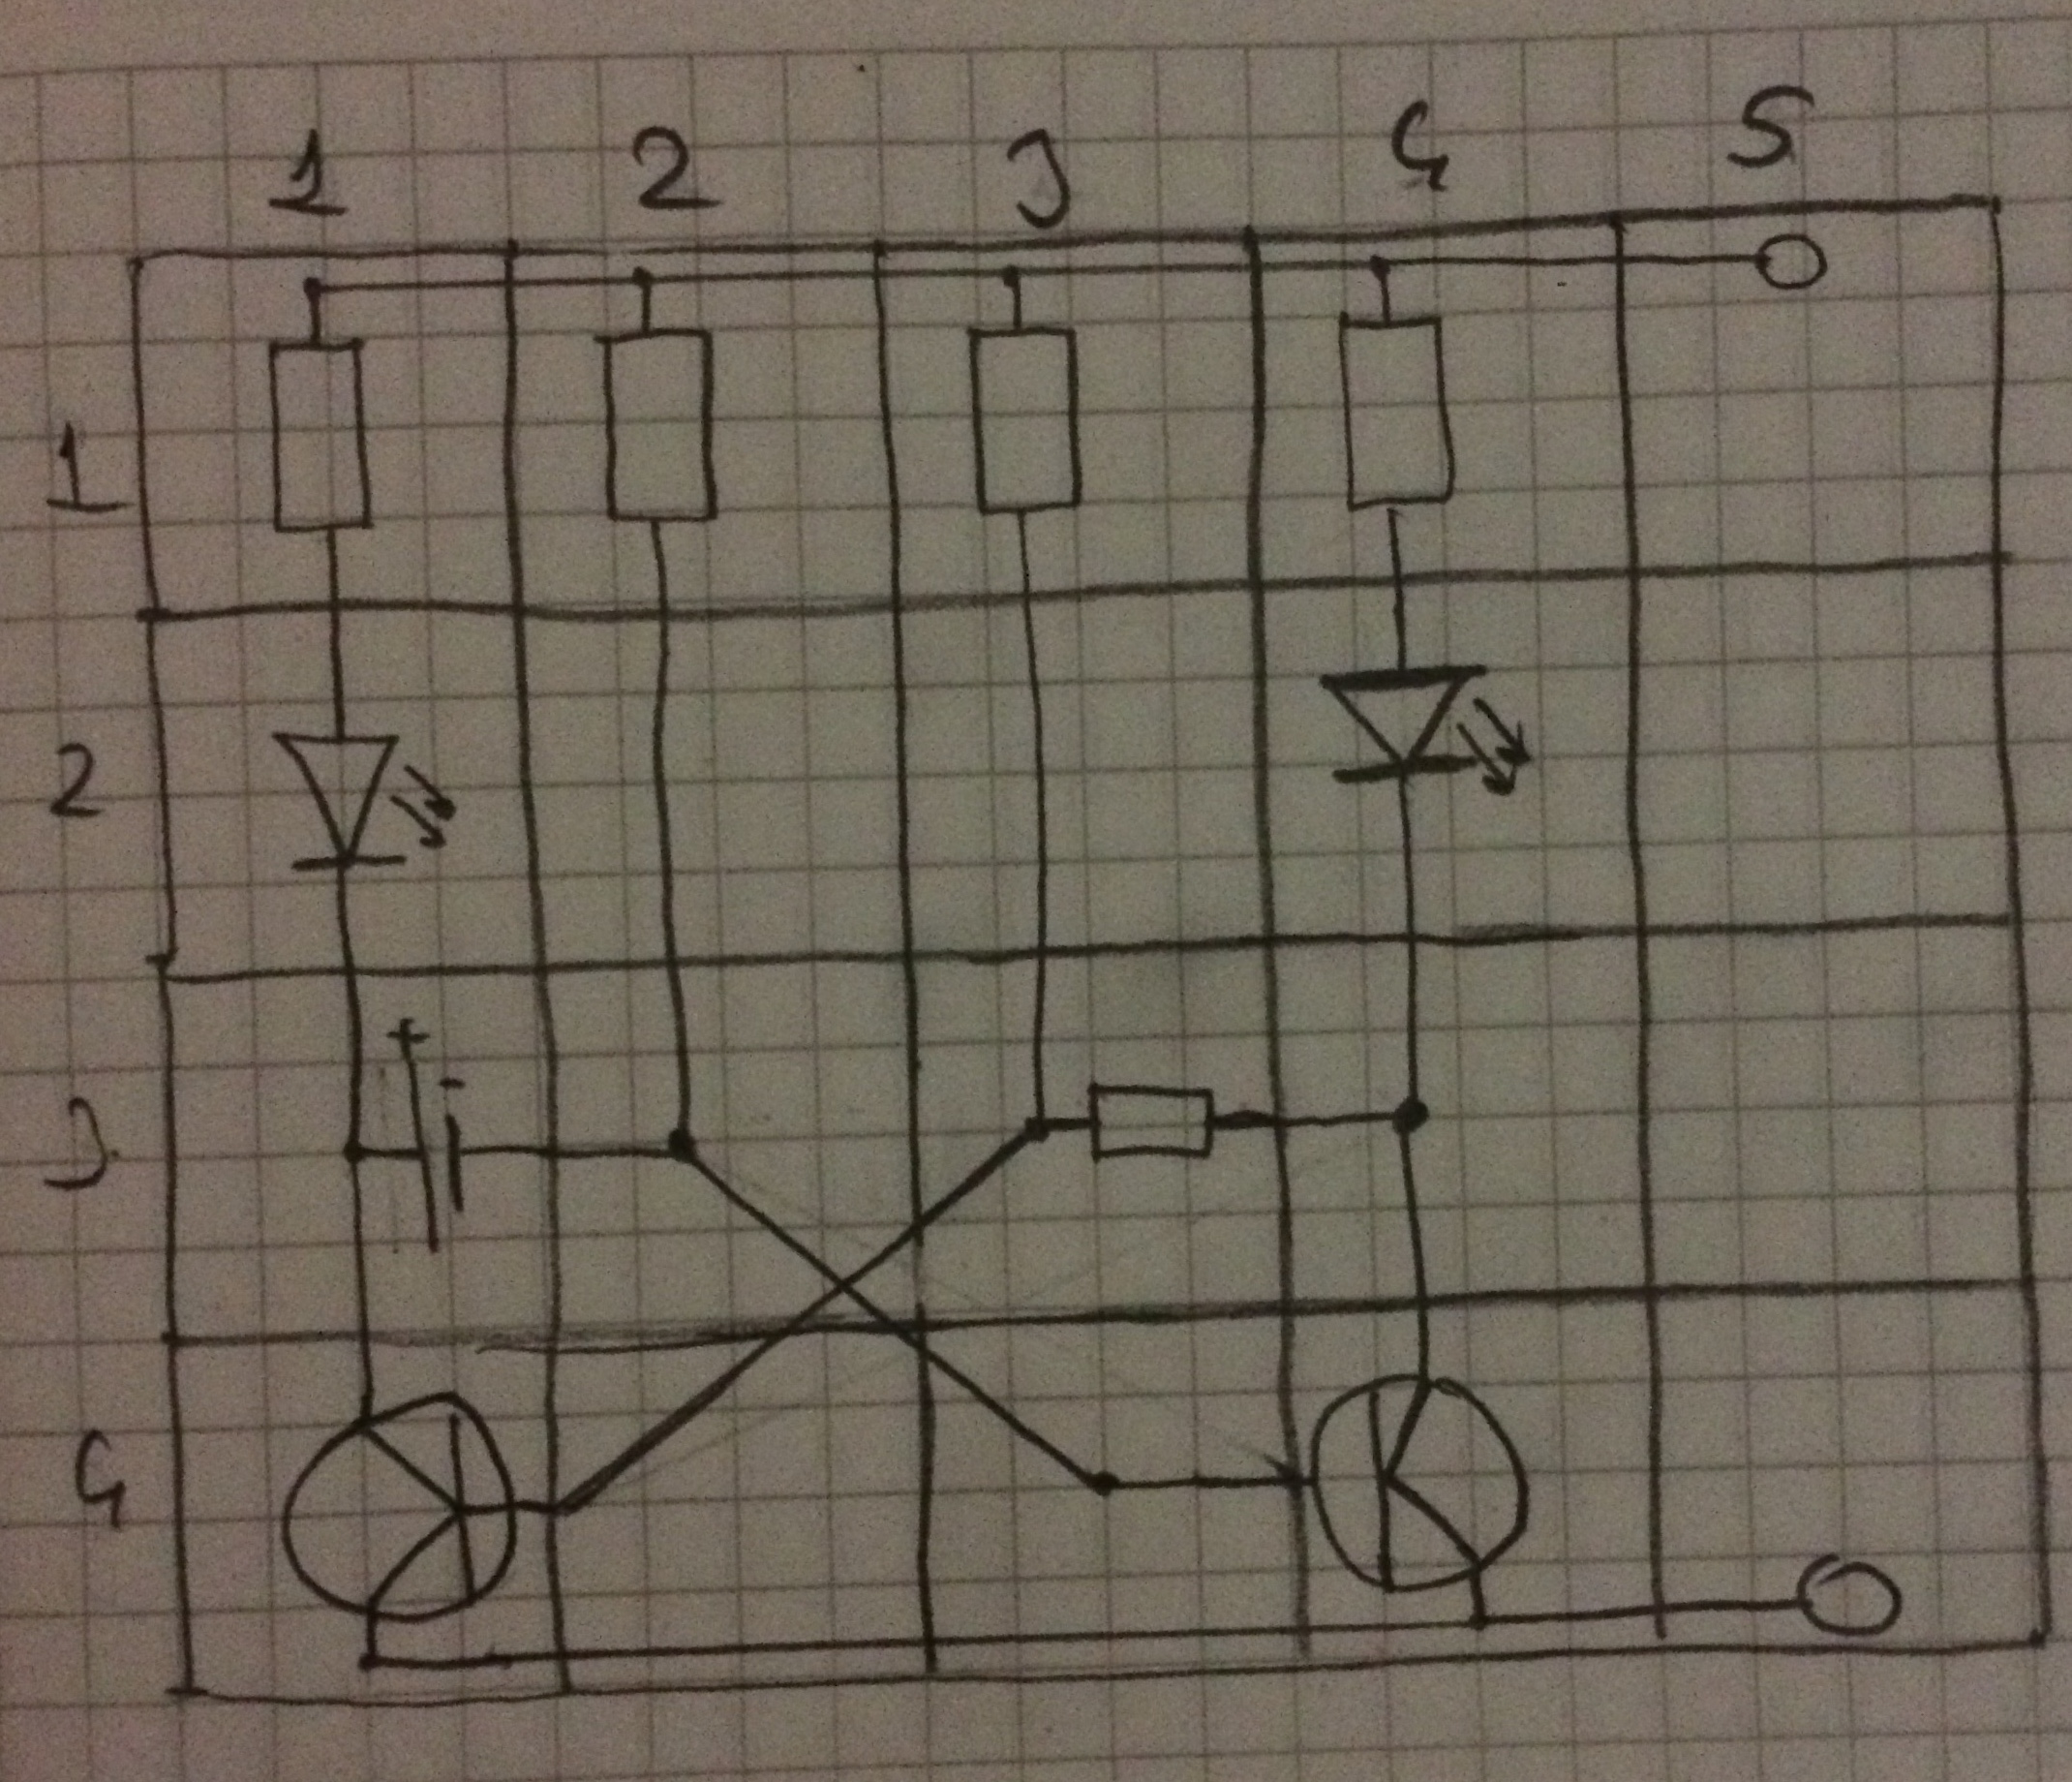 1 2 3 4 5
1
2
3
+
-
4